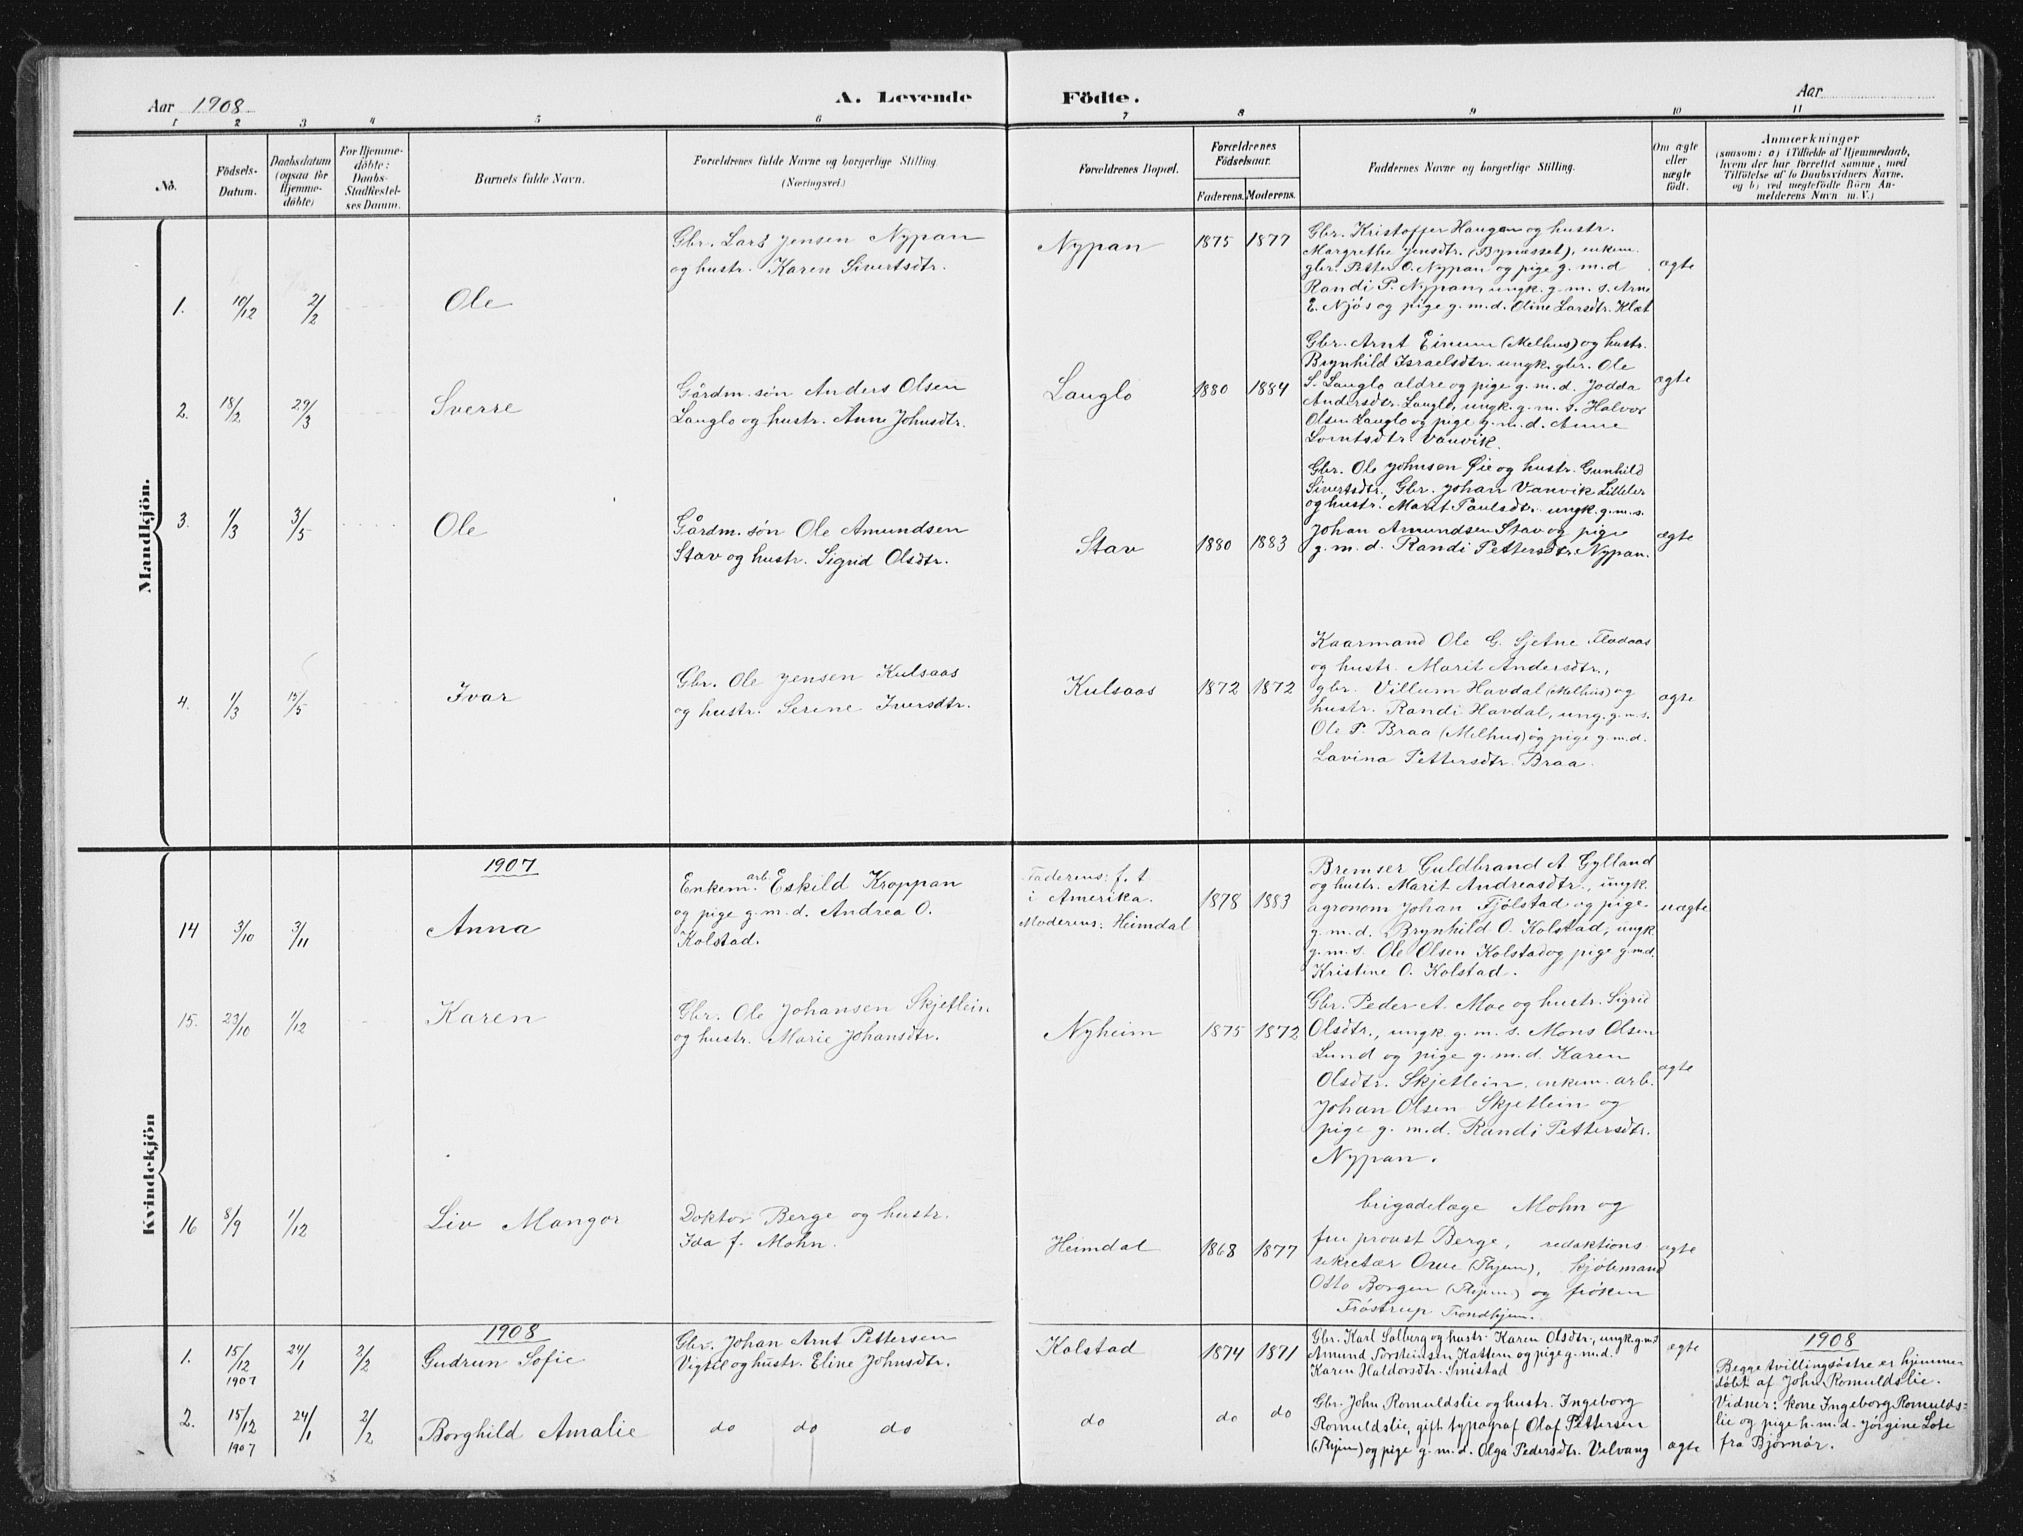 Aar 1908 A. Levende Födte. Aar
1 2 3 4 5 6 7 8 9 10 11
No.
Födsels-
Datum.
Daabsdatum
(ogsaa for
Hjemme-
döbte)
For Hjemme-
döbte:
Daabs-
Stadfæstel-
ses Datum.
Barnets fulde Navn.
Forældrenes fulde Navne og borgerlige Stilling
(Næringsvei.)
Forældrenes Bopæl.
Forældrenes
Födselsaar.
Faderens. Moderens.
Faddernes Navne og borgerlige Stilling.
Om ægte
eller
uægte
födt.
Anmærkninger
(saasom: a) i Tilfælde af Hjemmedaab,
hvem der har forrettet samme, med
Tilföielse af to Daabsvidners Navne.
og b) ved uægtefödte Börn An-
melderens Navn m.V.)
Mandkjön.
1. 10/12 2/2 Ole
Gbr. Lars Jensen Nypan
og hustr. Karen Sivertsdtr.
Nypan 1875 1877
Gbr. Kristoffer Haugan og hustr.
Margrethe Jensdtr. (Bynæsset), enkem.
gbr. Petter O. Nypan og pige g. m. d
Randi P. Nypan, ungk. g. m. s. Arne
E. Njøs og pige g. m. d. Oline Larsdtr. Klæt
ægte
2. 18/2 29/3 Sverre
Gårdm. søn Anders Olsen
Lauglo og hustr. Anne Johnsdtr.
Lauglo 1880 1884
Gbr. Arnt Einum (Melhus) og hustr.
Brynhild Israelsdtr. ungk. gbr. Ole
S. Lauglo ældre og pige g. m. d. Jodda
Andersdtr. Lauglo, ungk. g. m. s. Halvor
Olsen Lauglo og pige g. m. d. Anne
Lorntsdtr. Vanvik.
ægte
3. 1/3 3/5 Ole
Gårdm. søn Ole Amundsen
Stav og hustr. Sigrid Olsdtr.
Stav 1880 1883
Gbr. Ole Johnsen Øie og hustr. Gunhild
Sivertsdtr., Gbr. Johan Vanvik Lilleler
og hustr. Marit Paulsdtr. ungk. g. m. s.
Johan Amundsen Stav og pige
g. m. d. Randi Pettersdtr. Nypan.
ægte
4. 1/3 /5 Ivar
Gbr. Ole Jensen Kulsaas
og hustr. Serine Iversdtr.
Kulsaas 1872 1872
Kaarmand Ole G. Sjetne Flodaas
og hustr. Marit Andersdtr.,
gbr. Villum Havdal (Melhus) og
hustr. Randi Havdal, ung. g. m. s.
Ole P. Braa (Melhus) og pige g. m. d.
Lavina Pettersdtr. Braa.
ægte
Kvindekjön
1907
14 3/10 3/11 Anna
Enkem. arb. Eskild Kroppan
og pige g. m. d. Andrea O.
Kolstad.
Faderens: f. t
i Amerika.
Moderens: Heimdal
1878 1883
Bremser Guldbrand A Gylland
og hustr. Marit Andreasdtr., ungk.
agronom Johan Fjølstad og pige
g. m. d. Brynhild O. Kolstad, ungk
g. m. s. Ole Olsen Kolstad og pige g. m. d.
Kristine O. Kolstad.
uægte
15. 23/10 1/12 Karen
Gbr. Ole Johansen Skjetlein
og hustr. Marie Johansdtr.
Nyheim 1875 1872
Gbr. Peder A. Moe og hustr. Sigrid
Olsdtr., ungk. g. m. s. Mons Olsen
Lund og pige g. m. d. Karen
Olsdtr. Skjetlein, enkem. arb.
Johan Olsen Skjetlein og
pige g. m. d. Randi Pettersdtr.
Nypan.
ægte
16 8/9 1/12 Liv Mangor
Doktor Berge og hustr.
Ida f. Mohn.
Heimdal 1868 1877
brigadelæge Mohn og
fru proust Berge, redaktions
sekretær (Thjem), kjøbmand
Otto Borgen (Thjem) og frøken
Frøstrup Trondhjem.
ægte
1908
1. 15/12 1907 24/1 2/2 Gudrun Sofie
Gbr. Johan Arnt Pettersen
Vigtel og hustr. Eline Johnsdtr.
Kolstad 1874 1871
Gbr. Karl Solberg og hustr. Karen Olsdtr., ungk. g. m. s
Amund Torsteinsen Kattem og pige g. m. d.
Karen Haldorsdtr. Smistad
ægte
2. 15/12 1907 24/1 2/2 Borghild Amalie
do do do
do do do
Gbr. John Romuldslie og hustr. Ingeborg
Romuldslie, gift typograf Olaf Pettersen
(Thjem) og pige g. m. d. Olga Pedersdtr. Velvang
ægte
1908
Begge tvillingsøstre er hjemme-
døbt af John Romuldslie.
Vidner: kone Ingeborg Romulds-
lie og pige h. m. d. Jørgine Lote
fra Bjørnør.